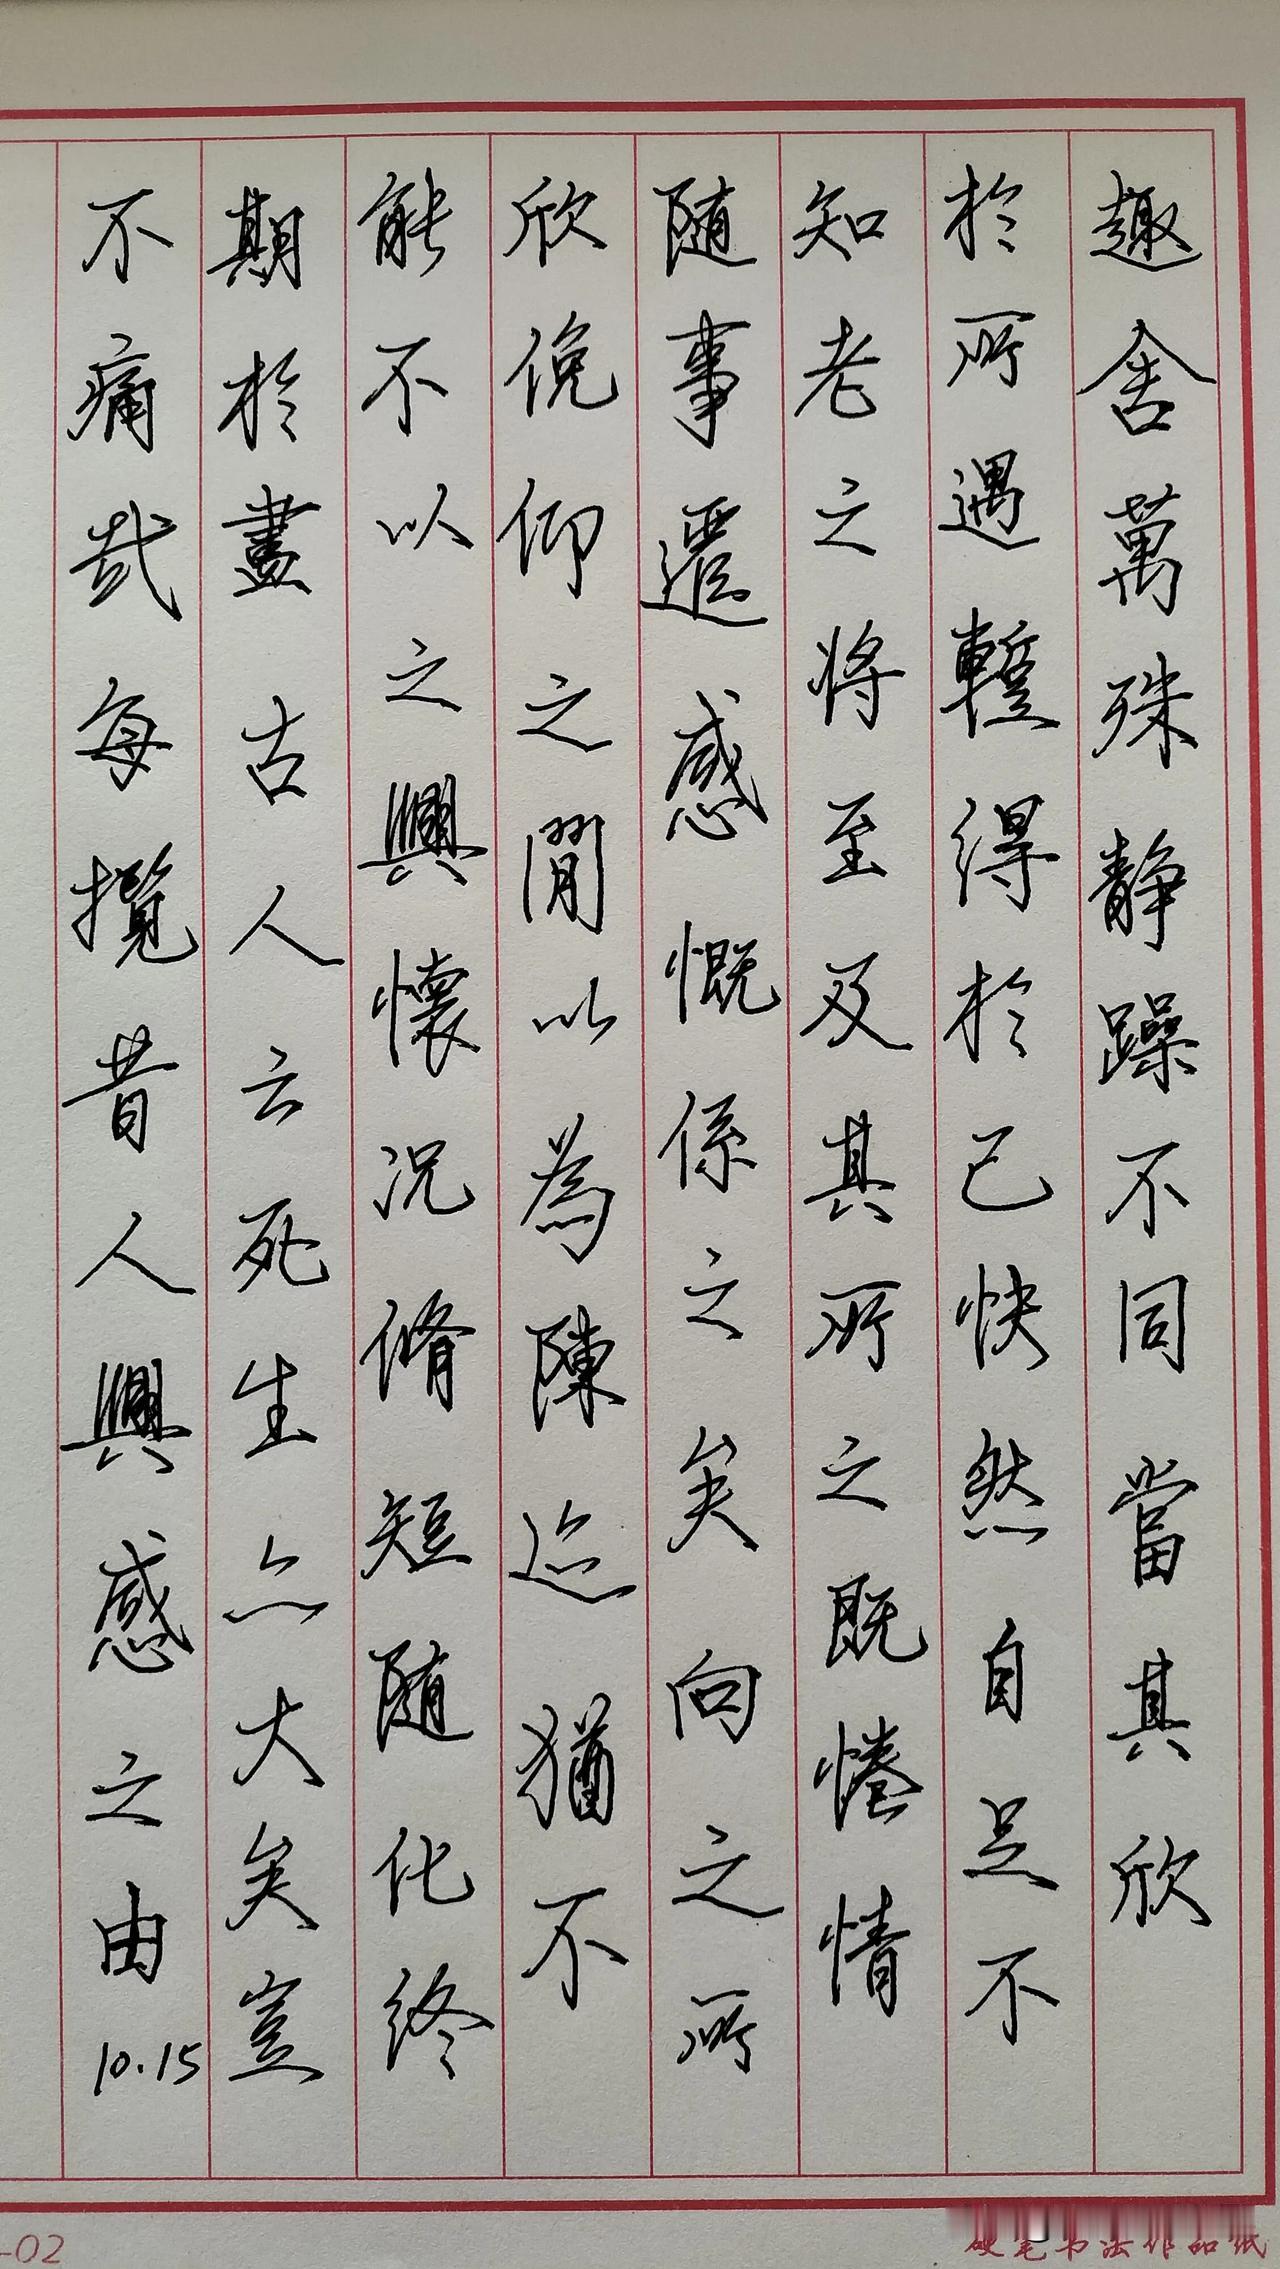 趣舍萬殊静躁不同當其欣
於所遇蹔得於己快然自足不
知老之将至及其所之既惓情
随事遷感慨係之矣向之所
欣俛仰之閒以為陳迹猶不
能不以之興懷況脩短随化終
期於盡古人云死生亦大矣豈
不痛哉每攬昔人興感之由
10.15
-02
硬笔书法作品纸